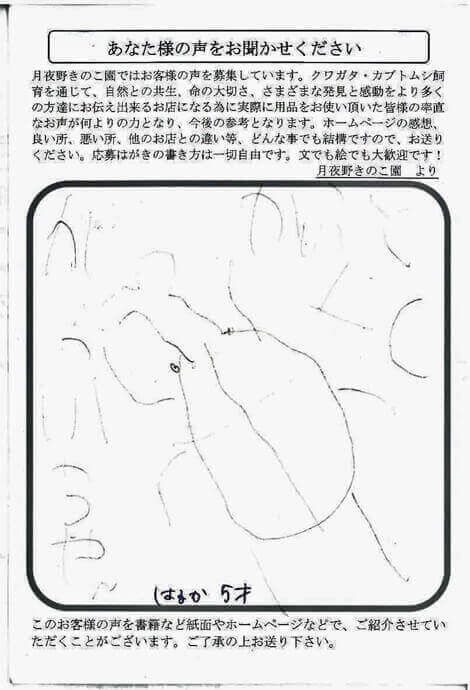 あなた様の声をお聞かせください
月夜野きのこ園ではお客様の声を募集しています。クワガタ・カブトムシ飼
育を通じて、自然との共生、命の大切さ、さまざまな発見と感動をより多く
の方達にお伝え出来るお店になる為に実際に用品をお使い頂いた皆様の率直
なお声が何よりの力となり、今後の参考となります。ホームページの感想、
良い所、悪い所、他のお店との違い等、どんな事でも結構ですので、お送り
ください。応募はがきの書き方は一切自由です。文でも絵でも大歓迎です！
月夜野きのこ園 より
はるか 5才
このお客様の声を書籍など紙面やホームページなどで、ご紹介させてい
ただくことがございます。ご了承の上お送り下さい。